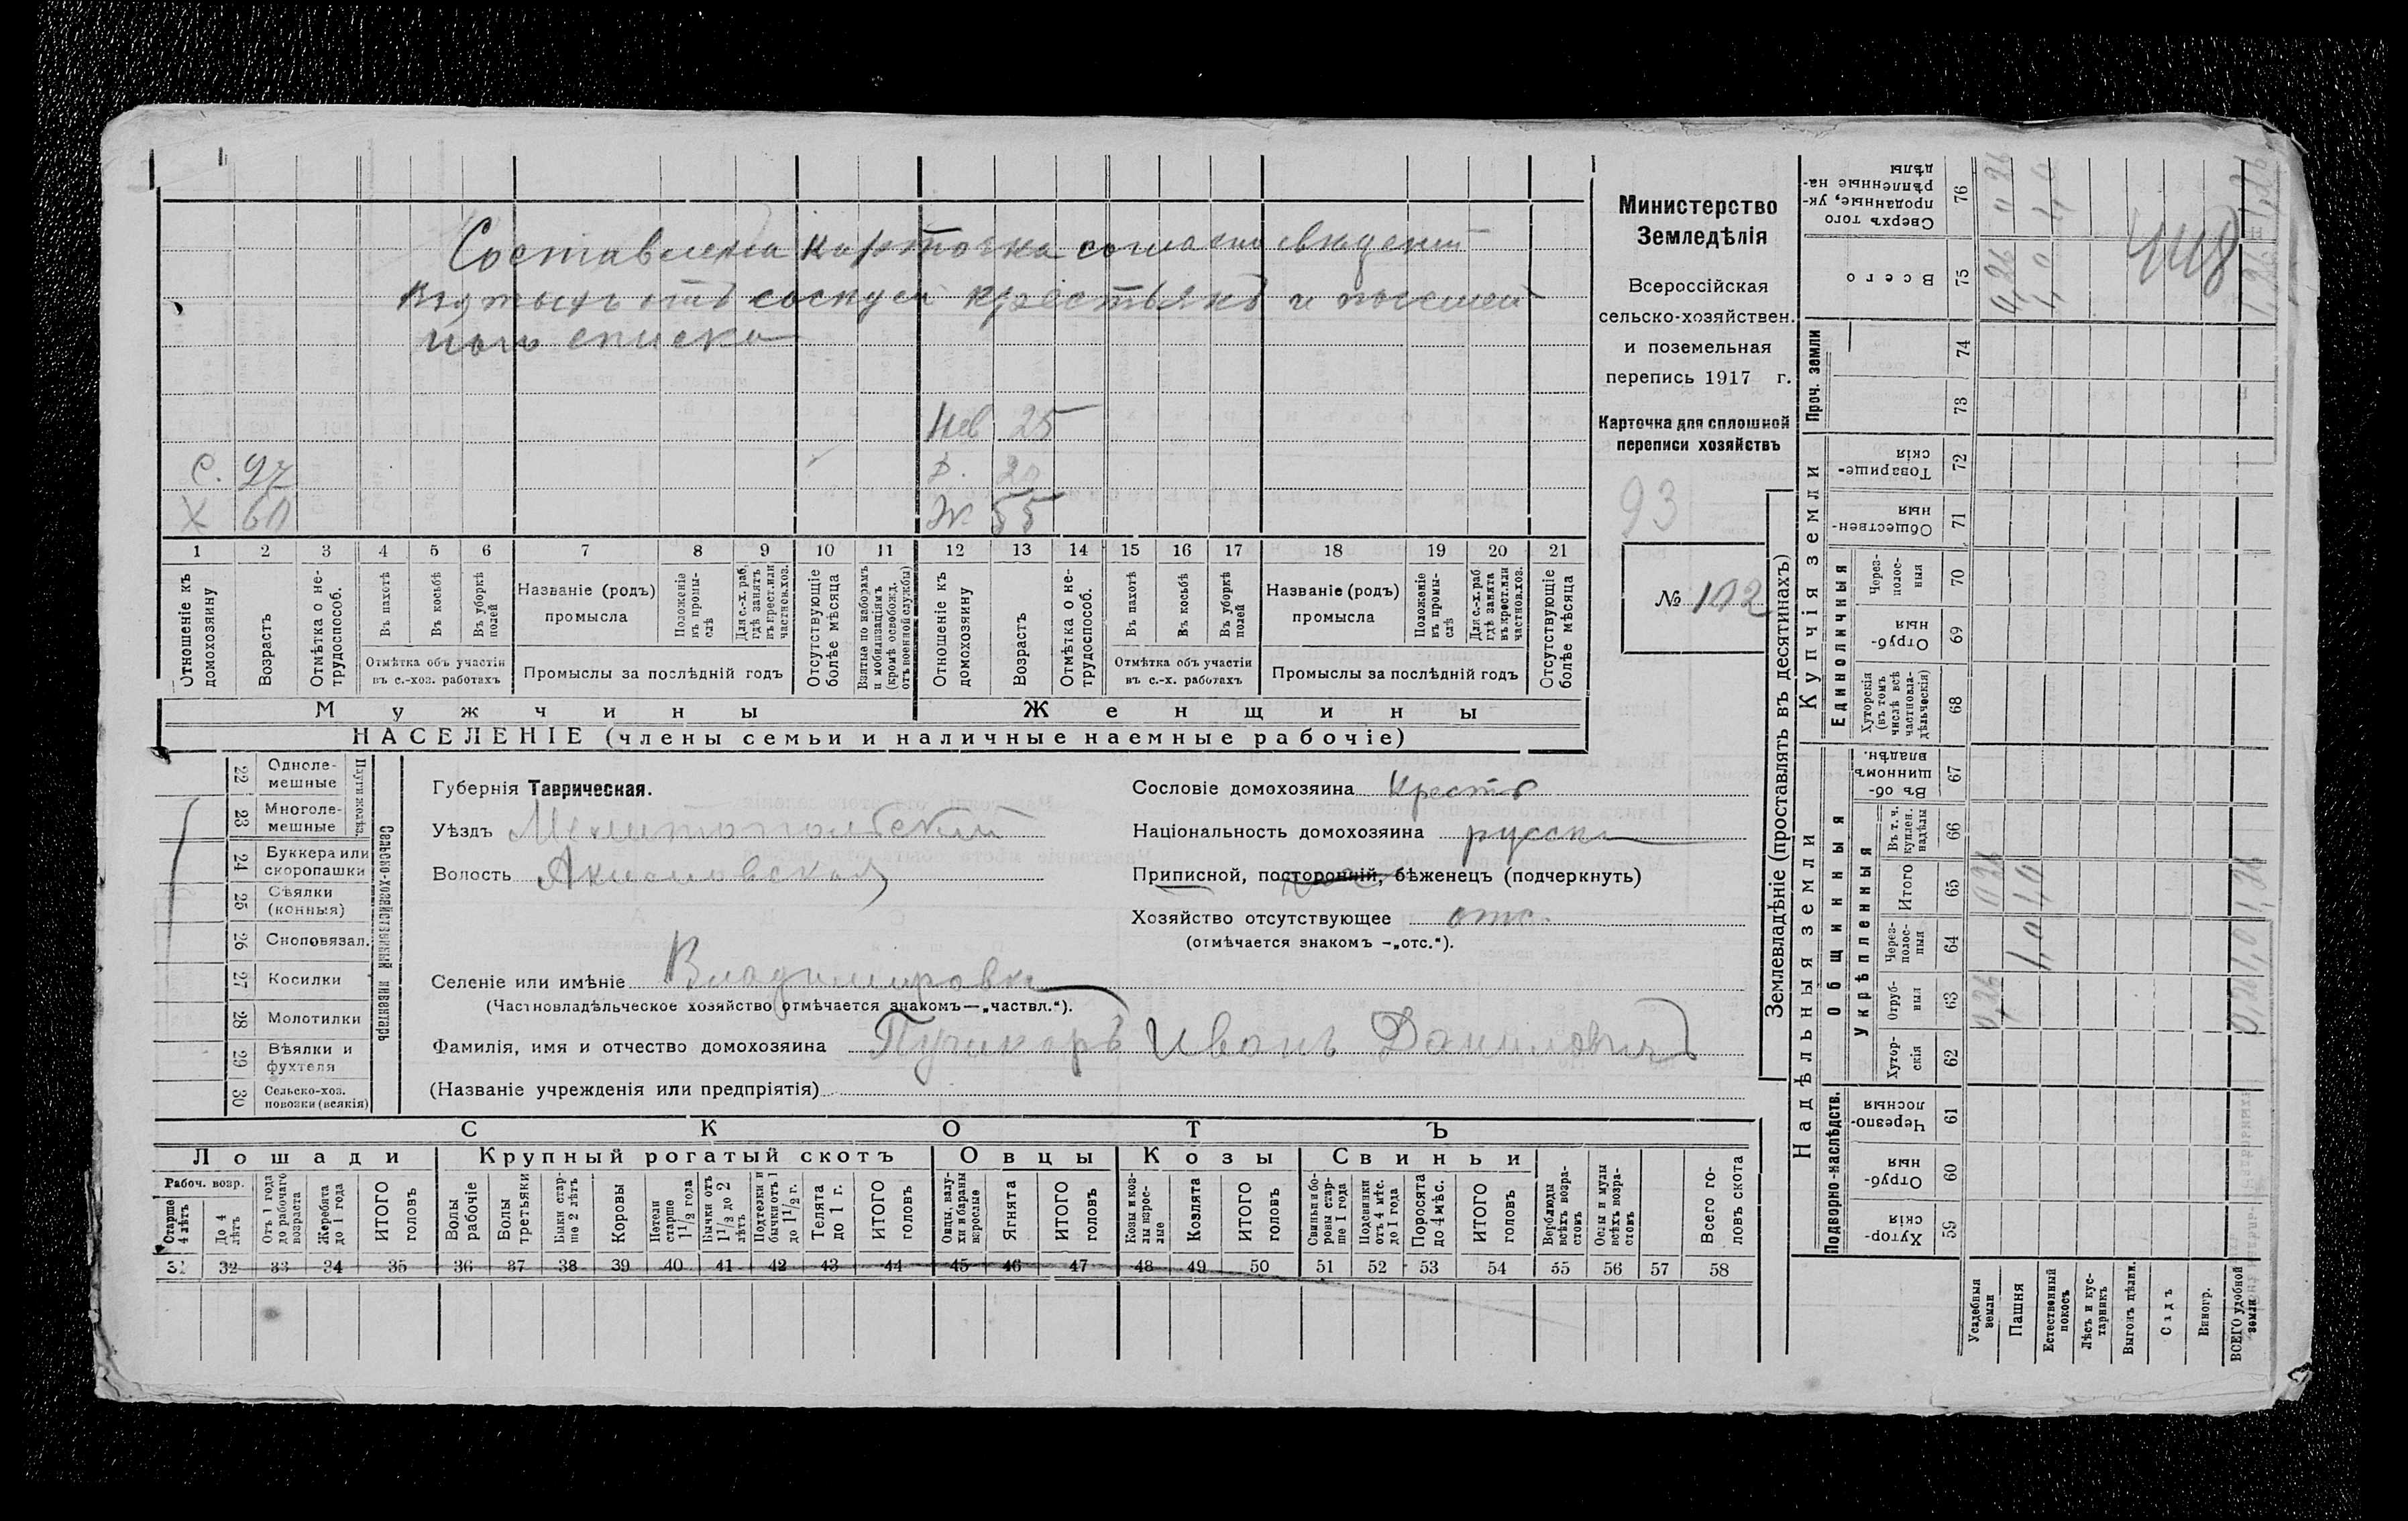 Составлена карточка согласно сведеній
взятыхъ отъ соседей крестьянъ и посемей
наго списка
Нев 25
С. 27
Д. 20
Х 60
Ж 55
1 2 3 4 5 6 7 8 9 10 11 12 13 14 15 16 17 18 19 20 21
Отношеніе къ домохозяину
Возрастъ
Отмѣтка о не-трудоспособ.
Въ пахотѣ
Въ косьбѣ
Въ уборкѣ полей
Отмѣтка объ участіи въ с.-хоз. работахъ
Названіе (родъ) промысла
Положеніе въ промы-слѣ
Для с.-х. раб. гдѣ занятъ въ крест. или частнов. хоз.
Промыслы за послѣдній годъ
Отсутствующіе болѣе мѣсяца
Взятые по наборамъ и мобилизаціямъ (кромѣ освобожд. отъ военной службы)
Отношеніе къ домохозяину
Возрастъ
Отмѣтка о не-трудоспособ.
Въ пахотѣ
Въ косьбѣ
Въ уборкѣ полей
Отмѣтка объ участіи въ с.-х. работахъ
Названіе (родъ) промысла
Положеніе въ промы-слѣ
Для с.-х. раб гдѣ занята въ крест. или частнов. хоз.
Промыслы за послѣдній годъ
Отсутствующіе болѣе мѣсяца
Мужчины
Женщины
НАСЕЛЕНІЕ (члены семьи и наличные наемные рабочіе)
Министерство
Земледѣлія
Всероссійская
сельско-хозяйствен.
и поземельная
перепись 1917 г.
Карточка для сплошной
переписи хозяйствъ
93
№ 112
22 Одноле-мешные
23 Многоле-мешные
24 Буккера или скоропашки
25 Сѣялки (конныя)
26 Сноповязал.
27 Косилки
28 Молотилки
29 Вѣялки и фухтеля
30 Сельско-хоз. повозки (всякія)
Сельско-хозяйственный инвентарь
Губернія Таврическая.
Уѣздъ Мелитопольскій
Волость Акимовская
Селеніе или имѣніе Владимировка
(Частновладѣльческое хозяйство отмѣчается знакомъ—„частвл.“).
Фамилія, имя и отчество домохозяина Пушкарь Иванъ Даниловичъ
(Названіе учрежденія или предпріятія)
Сословіе домохозяина Крестъ
Національность домохозяина русск
Приписной, посторонній, бѣженецъ (подчеркнуть)
Хозяйство отсутствующее отс.
(отмѣчается знакомъ -„отс.“).
СКОТЪ
Лошади
Крупный рогатый скотъ
Овцы
Козы
Свиньи
Рабоч. возр.
Старше 4 лѣтъ
До 4 лѣтъ
Отъ 1 года до рабочаго возраста
Жеребята до 1 года
ИТОГО головъ
Волы рабочіе
Волы третьяки
Быки стар-ше 2 лѣтъ
Коровы
Нетели старше 1 1/2 года
Бычки отъ 1 1/2 до 2 лѣтъ
Подтелки и бычки отъ 1 до 1 1/2 г.
Телята до 1 г.
ИТОГО головъ
Овцы, валу-хи и бараны взрослые
Ягнята
ИТОГО головъ
Козы и коз-лы взрос-лые
Козлята
ИТОГО головъ
Свиньи и бо-ровы стар-ше 1 года
Подсвинки отъ 4 мѣс. до 1 года
Поросята до 4 мѣс.
ИТОГО головъ
Верблюды всѣхъ возра-стовъ
Ослы и мулы всѣхъ возра-стовъ
Всего го-ловъ скота
31 32 33 34 35 36 37 38 39 40 41 42 43 44 45 46 47 48 49 50 51 52 53 54 55 56 57 58
Землевладѣніе (проставлять въ десятинахъ)
Надѣльныя земли
Купчія земли
Проч. земли
Подворно-наслѣдств.
Общинныя
Укрѣпленныя
Единоличныя
Сверхъ того проданные, ук-рѣпленные на-дѣлы 76
Всего 75
74
73
Товарище-скія 72
Обществен-ныя 71
Через-полос-ныя 70
Отруб-ныя 69
Хуторскія (въ томъ числѣ всѣ частновла-дѣльческія) 68
Въ об-щинномъ владѣн. 67
Въ т. ч. куплен. надѣлы 66
Итого 65
Через-полос-ныя 64
Отруб-ныя 63
Хутор-скія 62
Черезпо-лосныя 61
Отруб-ныя 60
Хутор-скія 59
Усадебныя земли
Пашня
Естественный покосъ
Лѣсъ и кус-тарникъ
Выгонъ цѣлин.
Садъ
Виногр.
ВСЕГО удобной земли
0,26
1,0
1,26